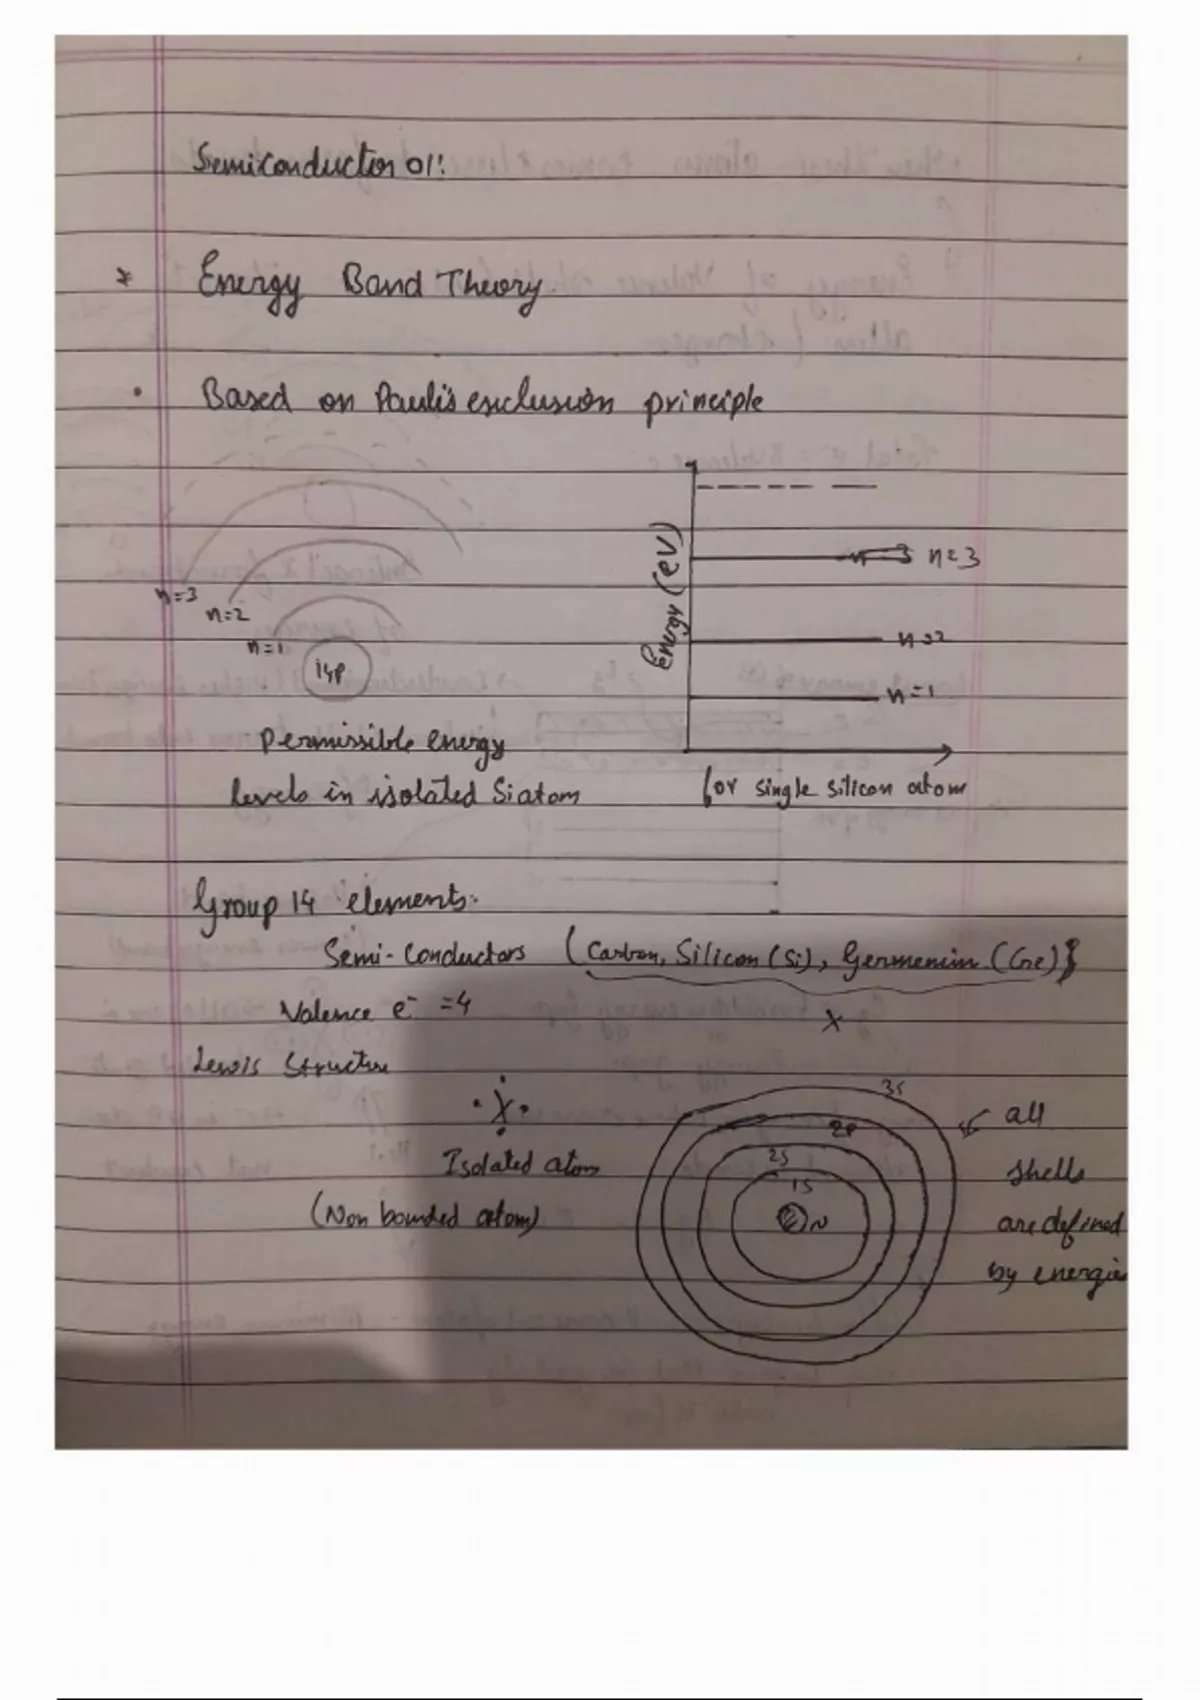 Semiconductor 01:
* Energy Band Theory.
• Based on Pauli's exclusion principle
n=3
n=2
n=1
14p
Permissible energy
levels in isolated Si atom
Energy (eV)
n=3
n=2
n=1
for single silicon atom
Group 14 elements:
Semi-Conductors (Carbon, Silicon (Si), Germenium (Ge)}
Valence e⁻ = 4
X
Lewis Structure
X
Isolated atom
(Non bounded atom)
3s
2p
2s
1s
N
all
shells
are defined
by energies